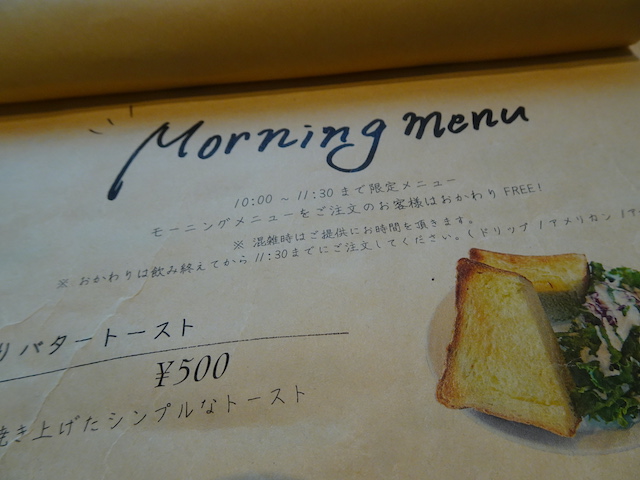 Morning menu
10:00 ~ 11:30 まで限定メニュー
モーニングメニューをご注文のお客様はおかわり FREE!
※ 混雑時はご提供にお時間を頂きます。
※ おかわりは飲み終えてから 11:30までにご注文してください。(ドリップ / アメリカン / ア
りバタートースト
¥500
焼き上げたシンプルなトースト